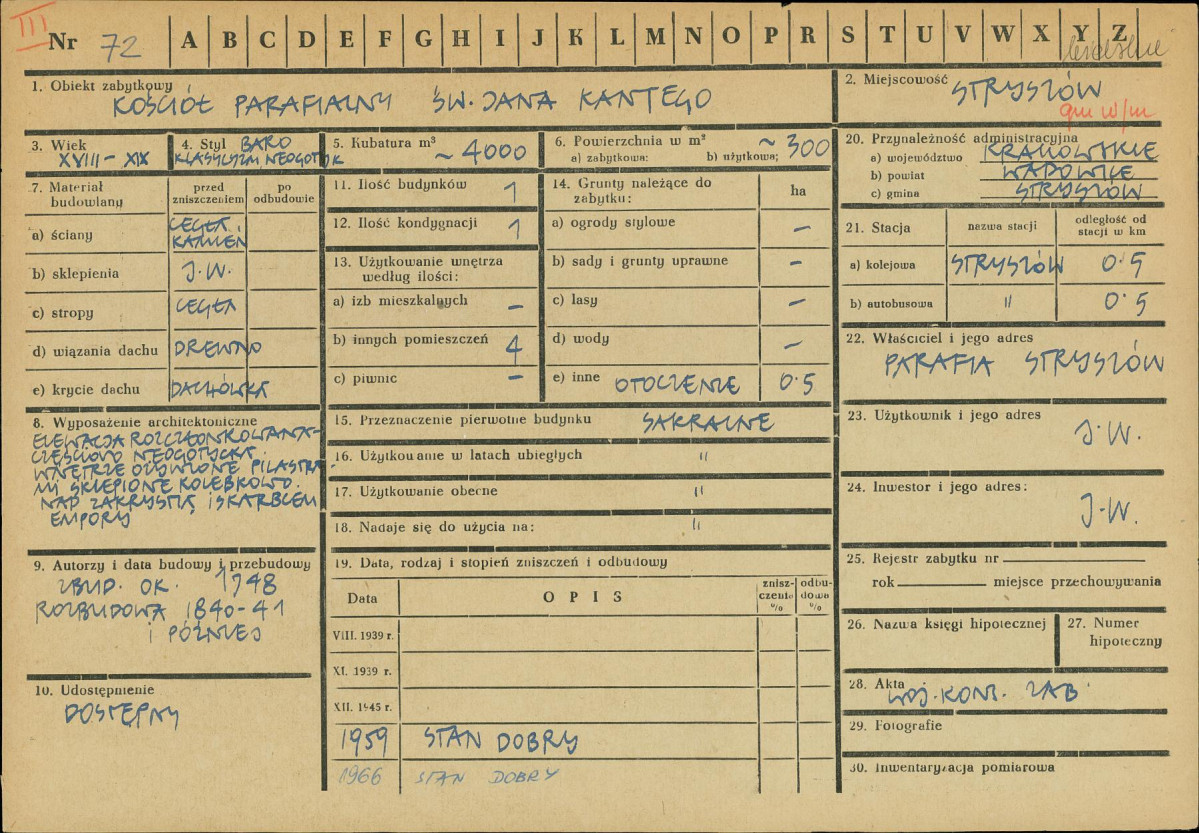 III
Nr 72 A B C D E F G H I J K L M N O P R S T U V W X Y Z
bielskie
1. Obiekt zabytkowy
KOŚCIÓŁ PARAFIALNY ŚW. JANA KANTEGO
2. Miejscowość STRYSZÓW
gm w/m
3. Wiek
XVIII – XIX
4. Styl BARO
KLASYCYZM, NEOGOTYK
5. Kubatura m³
~ 4000
6. Powierzchnia w m²
a) zabytkowa: b) użytkowa; ~ 300
20. Przynależność administracyjna
a) województwo KRAKOWSKIE
b) powiat WADOWICE
c) gmina STRYSZÓW
7. Materiał budowlany
przed zniszczeniem
po odbudowie
a) ściany CEGŁA, KAMIEŃ
b) sklepienia J.W.
c) stropy CEGŁA
d) wiązania dachu DREWNO
e) krycie dachu DACHÓWKA
11. Ilość budynków 1
12. Ilość kondygnacji 1
13. Użytkowanie wnętrza według ilości:
a) izb mieszkalnych –
b) innych pomieszczeń 4
c) piwnic –
14. Grunty należące do zabytku:
ha
a) ogrody stylowe –
b) sady i grunty uprawne –
c) lasy –
d) wody –
e) inne OTOCZENIE 0.5
21. Stacja
nazwa stacji
odległość od stacji w km
a) kolejowa STRYSZÓW 0.5
b) autobusowa " 0.5
22. Właściciel i jego adres
PARAFIA STRYSZÓW
8. Wyposażenie architektoniczne
ELEWACJA ROZCZŁONKOWANA-
CZĘŚCIOWO NEOGOTYCKA.
WNĘTRZE OŻYWIONE PILASTRA
MI SKLEPIONE KOLEBKOWO.
NAD ZAKRYSTIĄ I SKARBCEM
EMPORY
15. Przeznaczenie pierwotne budynku SAKRALNE
16. Użytkowanie w latach ubiegłych "
17. Użytkowanie obecne "
18. Nadaje się do użycia na: "
23. Użytkownik i jego adres
J.W.
24. Inwestor i jego adres:
J.W.
9. Autorzy i data budowy i przebudowy
ZBUD. OK. 1748
ROZBUDOWA 1840-41
I PÓŹNIEJ
10. Udostępnienie
DOSTĘPNY
19. Data, rodzaj i stopień zniszczeń i odbudowy
Data
OPIS
znisz-
czenie
%
odbu-
dowa
%
VIII. 1939 r.
XI. 1939 r.
XII. 1945 r.
1959 STAN DOBRY
1966 STAN DOBRY
25. Rejestr zabytku nr
rok miejsce przechowywania
26. Nazwa księgi hipotecznej
27. Numer hipoteczny
28. Akta
WOJ. KONS. ZAB
29. Fotografie
30. Inwentaryzacja pomiarowa